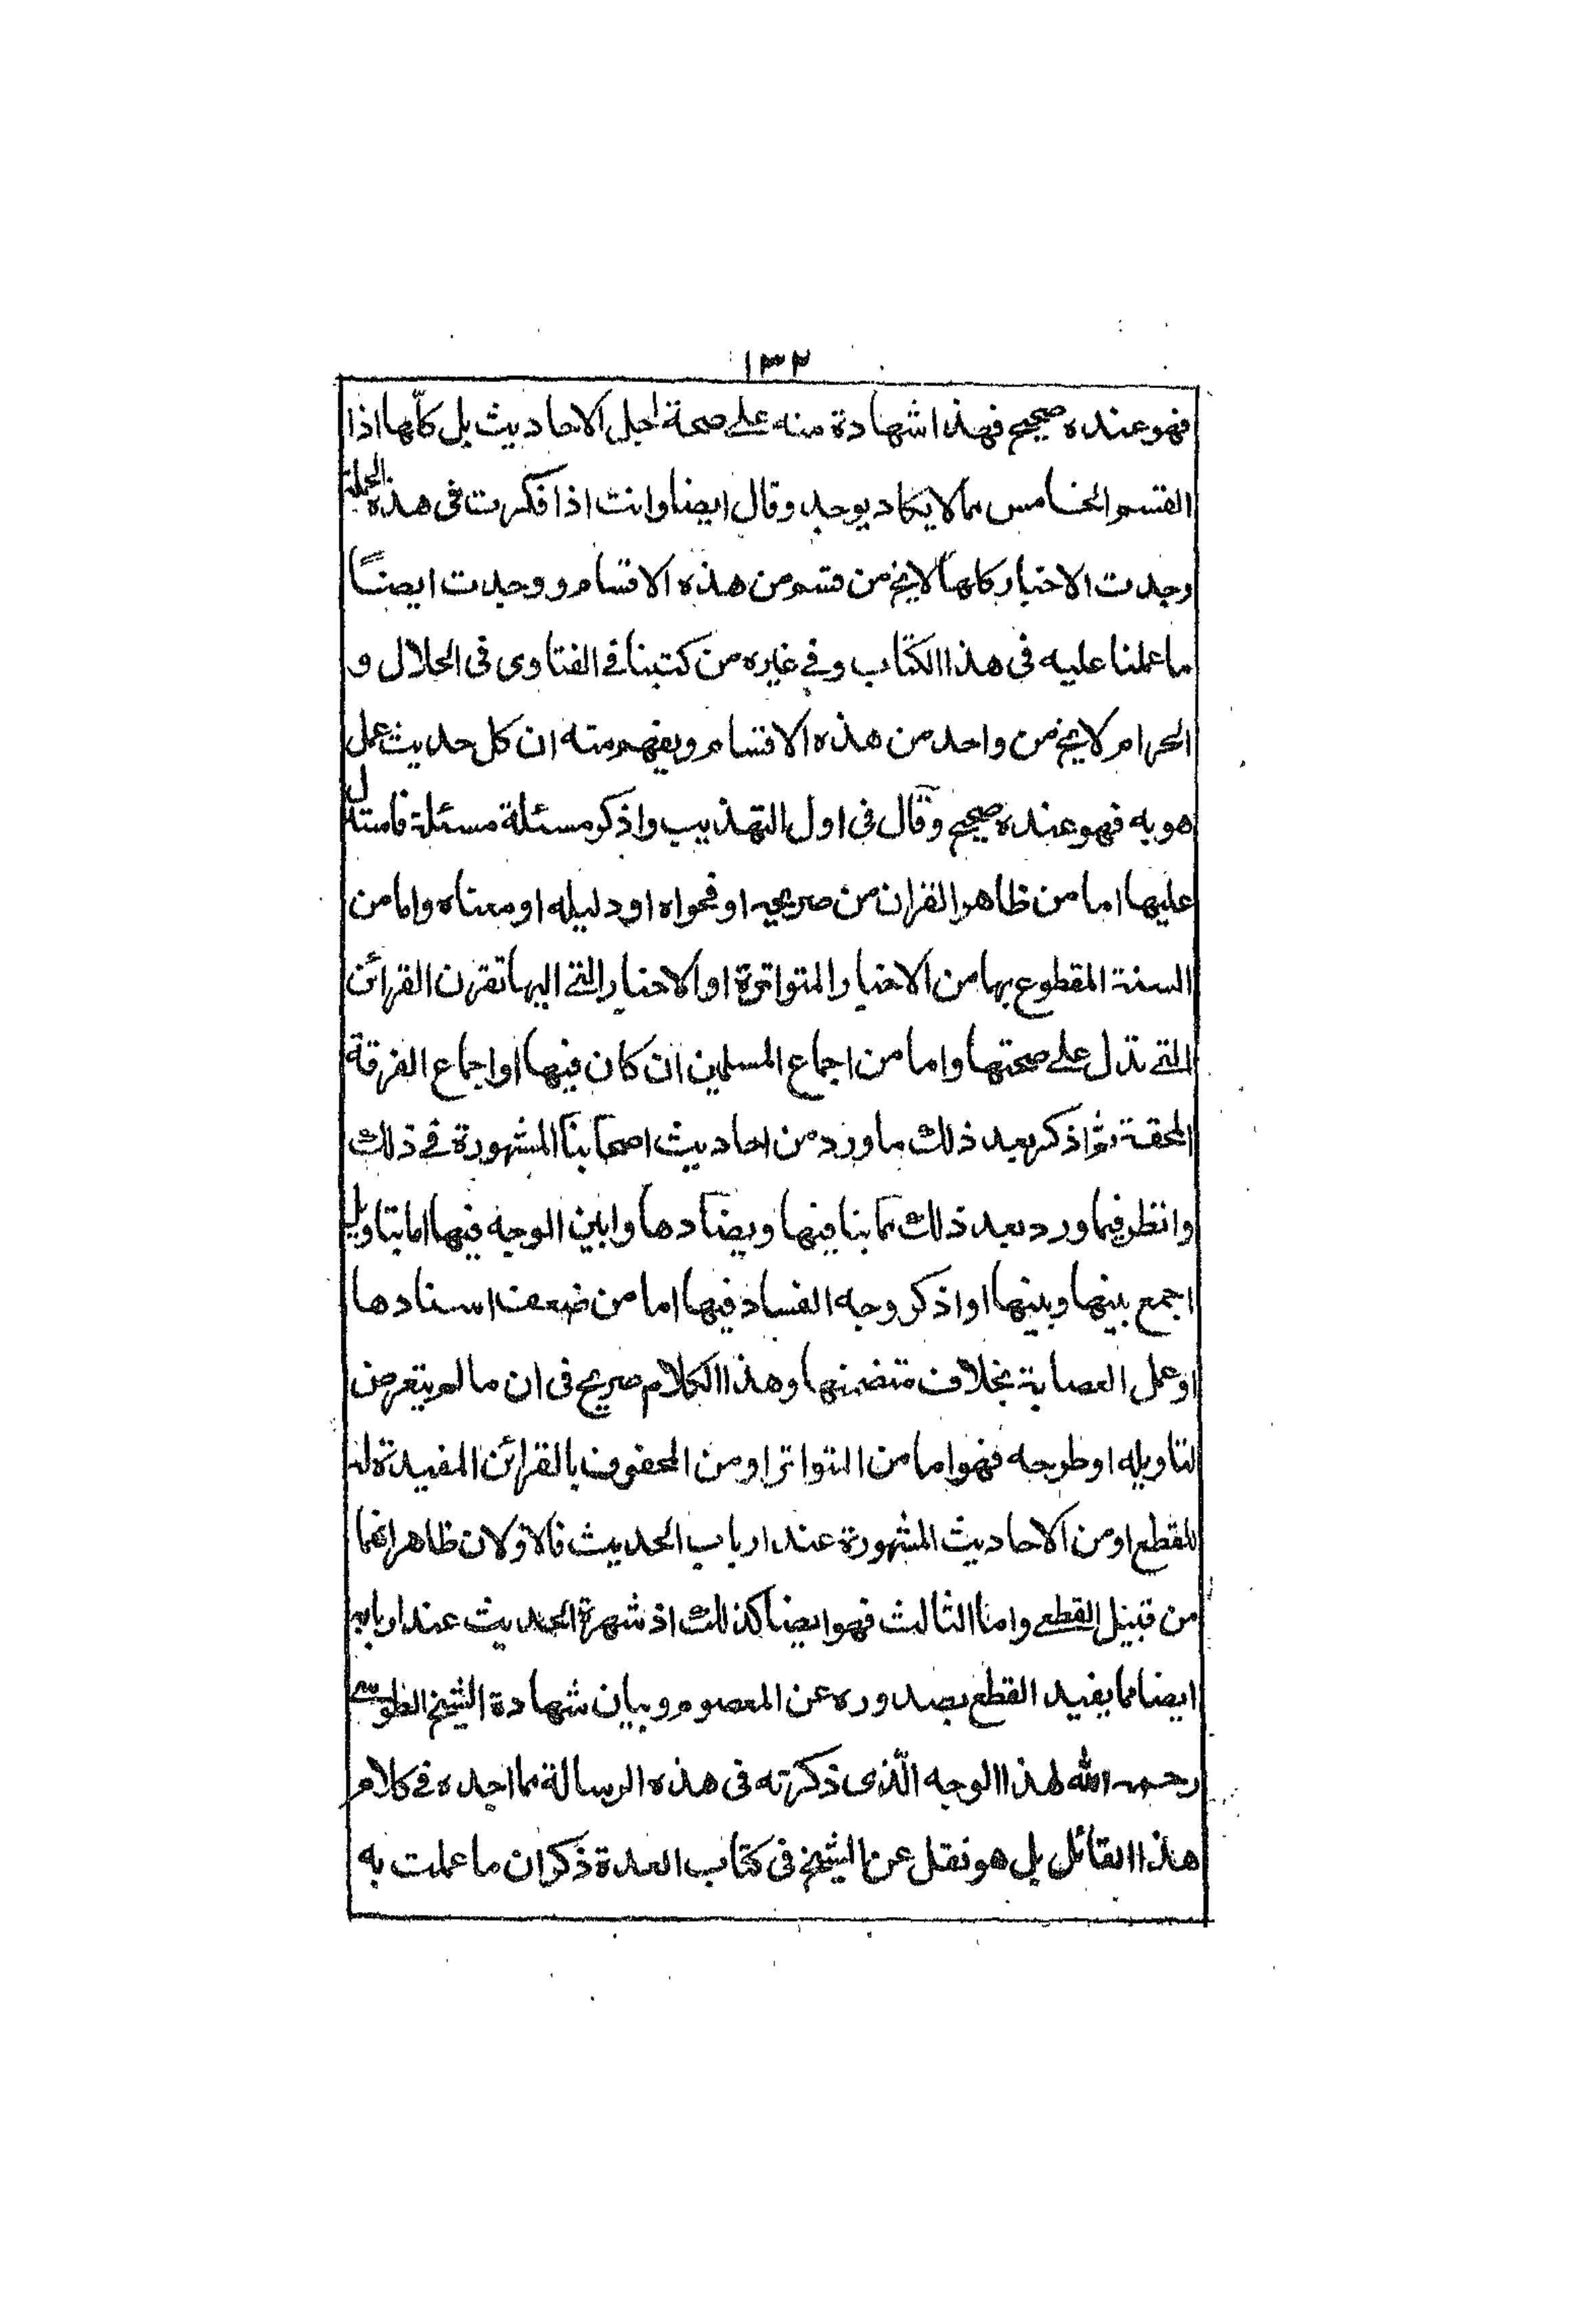 ١٣٢
فهو عنده صحيح فهذا شهادة منه على صحة اجل الاحاديث بل كلّها اذا
القسم الخامس مما لا يكاد يوجد وقال ايضا وانت اذا فكرت فى هذه الجملة
وجدت الاخبار كلها لا يخ من قسم من هذه الاقسام ووجدت ايضاً
ما عملنا عليه فى هذا الكتاب وفي غيره من كتبنا في الفتاوى فى الحلال و
الحرام لا يخ من واحد من هذه الاقسام ويفهم منه ان كل حديث عمل
هو به فهو عنده صحيح وقال فى اول التهذيب واذكر مسئلة مسئلة فاستدل
عليها اما من ظاهر القران من صريحه او فحواه او دليله او معناه واما من
السنة المقطوع بها من الاخبار المتواترة او الاخبار التي اليها تقرن القرائن
التي تدل على صحتها واما من اجماع المسلمين ان كان فيها او اجماع الفرقة
المحقة ثم اذكر بعد ذلك ما ورد من احاديث اصحابنا المشهورة في ذلك
وانظر فيما ورد بعد ذلك مما ينافيها ويضادها وابين الوجه فيها اما بتاويل
اجمع بينها وبينها او اذكر وجه الفساد فيها اما من ضعف اسنادها
او عمل العصابة بخلاف متضمنها وهذا الكلام صريح فى ان ما لم يتعرض
لتاويله او طرحه فهو اما من التواتر او من المحفوف بالقرائن المفيدة له
للقطع او من الاحاديث المشهورة عند ارباب الحديث فالاولان ظاهر انهما
من قبيل القطعي واما الثالث فهو ايضا كذلك اذ شهرة الحديث عند اربابه
ايضا مما يفيد القطع بصدوره عن المعصوم وبيان شهادة الشيخ الطوسي
رحمه الله لهذا الوجه الّذى ذكرته فى هذه الرسالة مما اجده في كلام
هذا القائل بل هو نقل عن الشيخ فى كتاب العدة ذكر ان ما عملت به